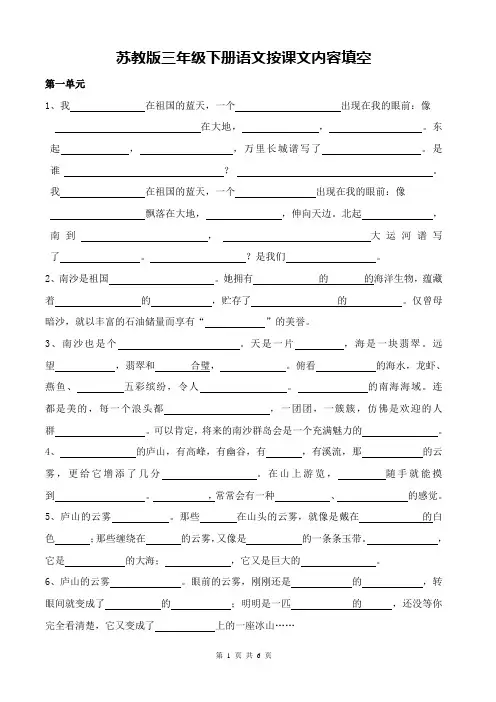 苏教版三年级下册语文按课文内容填空
第一单元
1、我 在祖国的蓝天，一个 出现在我的眼前：像
在大地， ， 。东
起 ， ，万里长城谱写了 。是
谁 ？ 。
我 在祖国的蓝天，一个 出现在我的眼前：像
飘落在大地， ，伸向天边。北起 ，
南到 ， 大运河谱写
了 。 ？是我们 。
2、南沙是祖国 。她拥有 的 的海洋生物，蕴藏
着 的 ，贮存了 的 。仅曾母
暗沙，就以丰富的石油储量而享有“ ”的美誉。
3、南沙也是个 。天是一片 ，海是一块翡翠。远
望 ，翡翠和 合璧， 。俯看 的海水，龙虾、
燕鱼、 五彩缤纷，令人 。 的南海海域。连
都是美的，每一个浪头都 ，一团团，一簇簇，仿佛是欢迎的人
群 。可以肯定，将来的南沙群岛会是一个充满魅力的 。
4、 的庐山，有高峰，有幽谷，有 ，有溪流，那 的云
雾，更给它增添了几分 。在山上游览， 随手就能摸
到 。 ，常常会有一种 、 的感觉。
5、庐山的云雾 。那些 在山头的云雾，就像是戴在 的白
色 ；那些缠绕在 的云雾，又像是 的一条条玉带。 ，
它是 的大海； ，它又是巨大的 。
6、庐山的云雾 。眼前的云雾，刚刚还是 的 ，转
眼间就变成了 的 ；明明是一匹 的 ，还没等你
完全看清楚，它又变成了 上的一座冰山……
第 1 页 共 6 页